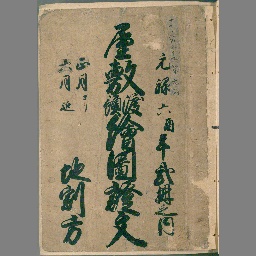 元禄六酉年貳冊之内
屋敷渡預繪圖證文
正月より
六月迄
地割方